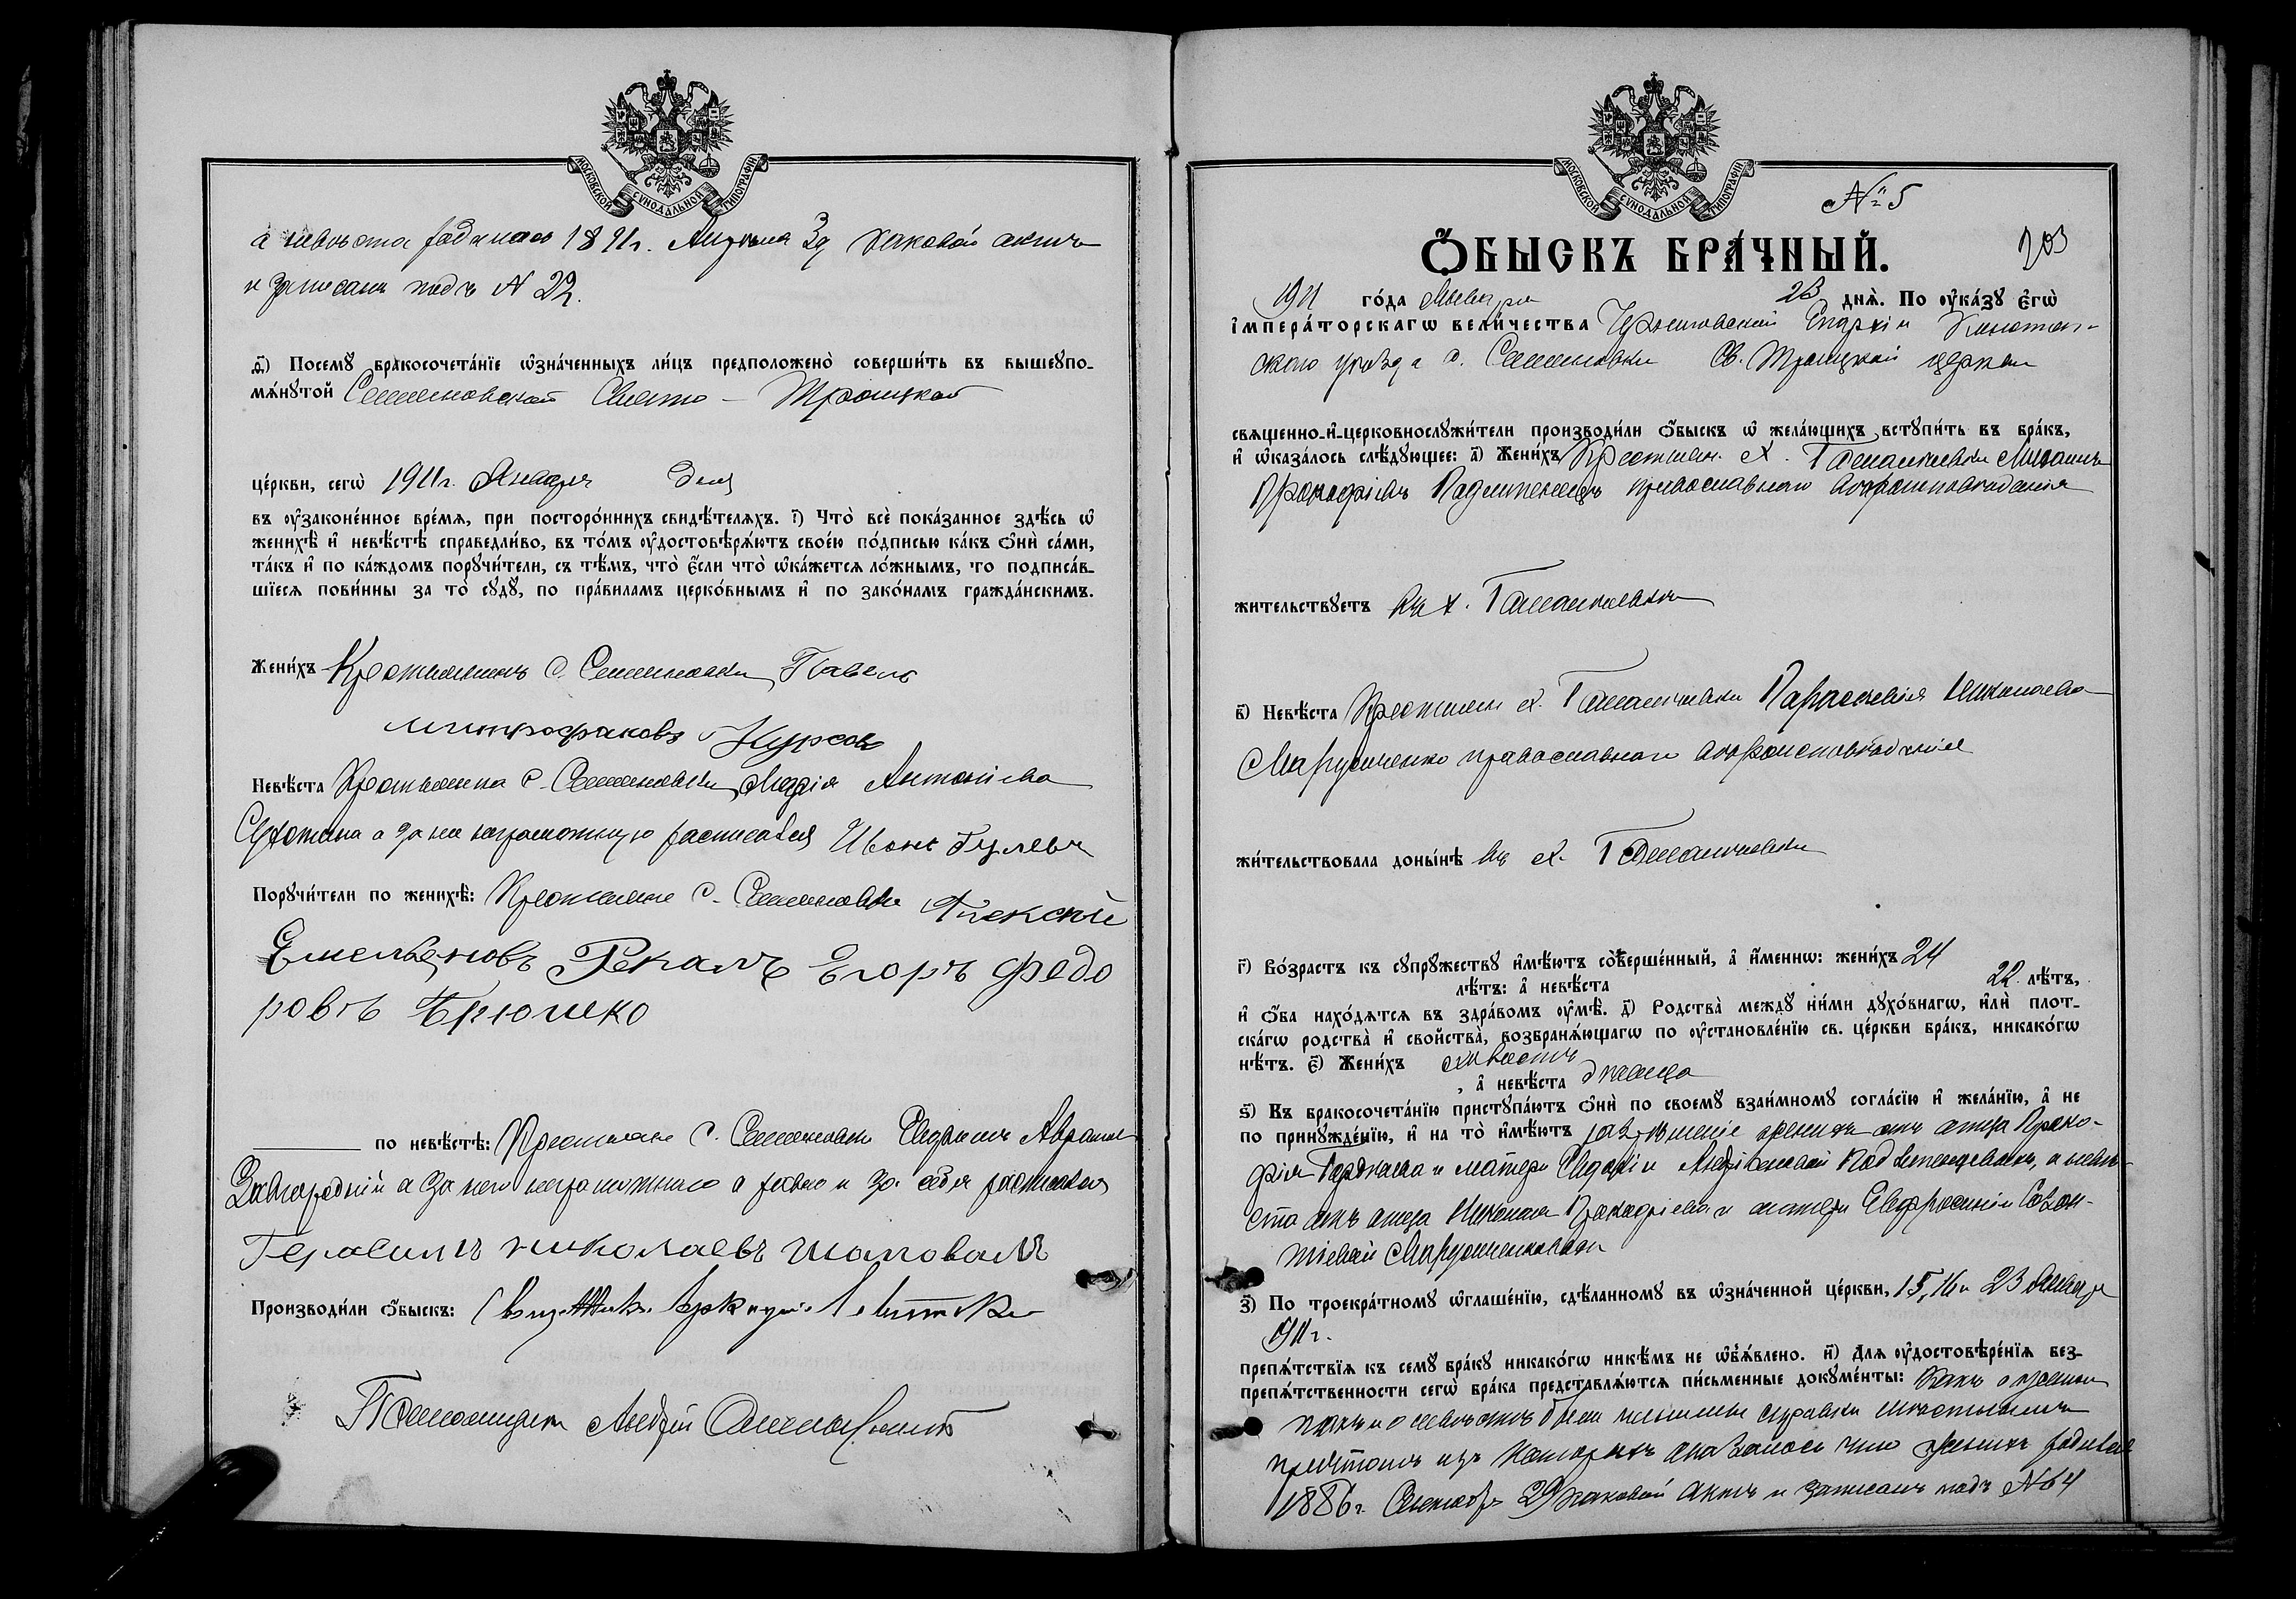 МОСКОВСКОЙ СѴНОДАЛЬНОЙ ТИПОГРАФІИ
а невѣста родилась 1891г. Апрѣля 3д каковой актъ
и записанъ подъ N 22.
д҃) Посемꙋ̀ бракосочета́нїе ѡ҆зна́ченныхъ ли́цъ предположено̀ соверши́ть въ вышеꙋпо-
мѧ́нꙋтой Семеновской Свято - Троицкой
це́ркви, сегѡ̀ 1911г. Января дня
въ ᲂу҆законе́нное вре́мѧ, при посторо́ннихъ свидѣ́телѧхъ. і҃) Что̀ всѐ пока́занное здѣ́сь ѡ҆
женихѣ̀ и҆ невѣ́стѣ справедли́во, въ то́мъ ᲂу҆достовѣрѧ́ютъ свое́ю по́дписью ка́къ ѻ҆нѝ са́ми,
та́къ и҆ по ка́ждомъ порꙋчи́тели, съ тѣ́мъ, что̀ є҆́сли что̀ ѡ҆ка́жетсѧ ло́жнымъ, то подписа́в-
шїесѧ пови́нны за то̀ сꙋдꙋ̀, по пра́виламъ церко́внымъ и҆ по зако́намъ гражда́нскимъ.
Жени́хъ Крестьянинъ с. Семеновки Павелъ
митрофановъ Курсовъ
Невѣ́ста Крестьянка с. Семеновки Марія Антоніева
а за нее неграмотную расписался Иванъ Гулевъ
Порꙋчи́тели по женихѣ̀: Крестьяне с. Семеновки Алексѣй
Емельяновъ Рекалъ Егоръ Федо
ровъ Ярюшко
по невѣ́стѣ: Крестьяне с. Семеновки Евдокимъ Аврамов
Завгородній а за него неграмотнаго а равно и за себя расписался
Герасимъ николаевъ шаповалъ
Производи́ли ѻ҆́быскъ: Свящ. Аркадій Левитскій
Псаломщикъ Андрей
МОСКОВСКОЙ СѴНОДАЛЬНОЙ ТИПОГРАФІИ
№ 5
203
Ѻ҆́БЫСКЪ БРА́ЧНЫЙ.
1911 го́да Января 23 днѧ̀. По ᲂу҆ка́зꙋ є҆гѡ̀
і҆мпера́торскагѡ вели́чества Черниговской Епархіи Конотоп-
скаго уѣзда с. Семеновки Св. Троицкой церкви
свѧщенно-и҆-церковнослꙋжи́тели производи́ли ѻ҆́быскъ ѡ҆ жела́ющихъ встꙋпи́ть въ бра́къ,
и҆ ѡ҆каза́лось слѣ́дꙋющее: а҃) Жени́хъ Крестьян. х. Гамалѣевки Михаилъ
Прокофіевъ православнаго вѣроисповѣданія
жительствꙋетъ въ х. Гамалѣевки
в҃) Невѣ́ста Крестьян. х. Гамалѣевки Параскевія Николаева
Марусиченко православнаго вѣроисповѣданія
жи́тельствовала доны́нѣ въ х. Гамалѣевки
г҃) Во́зрастъ къ сꙋпрꙋ́жествꙋ и҆мѣ́ютъ соверше́нный, а҆ и҆́меннѡ: жени́хъ 24
лѣ́тъ: а҆ невѣ́ста 22 лѣ́тъ,
и҆ ѻ҆́ба нахо́дѧтсѧ въ здра́вомъ ᲂу҆мѣ̀. д҃) Родства̀ междꙋ̀ ни́ми дꙋхо́внагѡ, и҆лѝ плот-
ска́гѡ родства̀ и҆ свойства̀, возбранѧ́ющагѡ по ᲂу҆становле́нїю св. це́ркви бра́къ, никако́гѡ
нѣ́тъ. є҃) Жени́хъ холостъ
, а҆ невѣ́ста дѣвица
ѕ҃) Къ бракосочета́нїю пристꙋпа́ютъ ѻ҆нѝ по своемꙋ̀ взаи́мномꙋ согла́сїю и҆ жела́нїю, а҆ не
по принꙋжде́нїю, и҆ на то̀ и҆мѣ́ютъ разрѣшеніе женихъ отъ отца Проко-
фія и матери Евдокіи а невѣ-
ста отъ отца Николая Прокофіева и матери Евфросиніи
Марусиченковыхъ
з҃) По троекра́тномꙋ ѡ҆глаше́нїю, сдѣ́ланномꙋ въ ѡ҆зна́ченной це́ркви, 15, 16 и 23 Января
1911г.
препѧ́тствїѧ къ семꙋ̀ бра́кꙋ никако́гѡ никѣ́мъ не ѡ҆б̾ѧ́влено. и҃) Длѧ ᲂу҆достовѣре́нїѧ без-
препѧ́тственности сегѡ̀ бра́ка представлѧ́ютсѧ пи́сьменные докꙋме́нты: Какъ о женихѣ
такъ и о невѣстѣ были справки
причтомъ изъ которыхъ оказалось что женихъ родился
1886г. Октября 29 каковой актъ и записанъ подъ №64